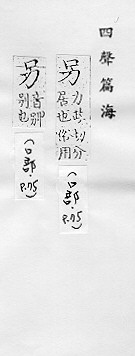 四聲篇海
另 力政切分
居也俗用
(口部.P.75)
另 音別
別也
(口部.P.75)